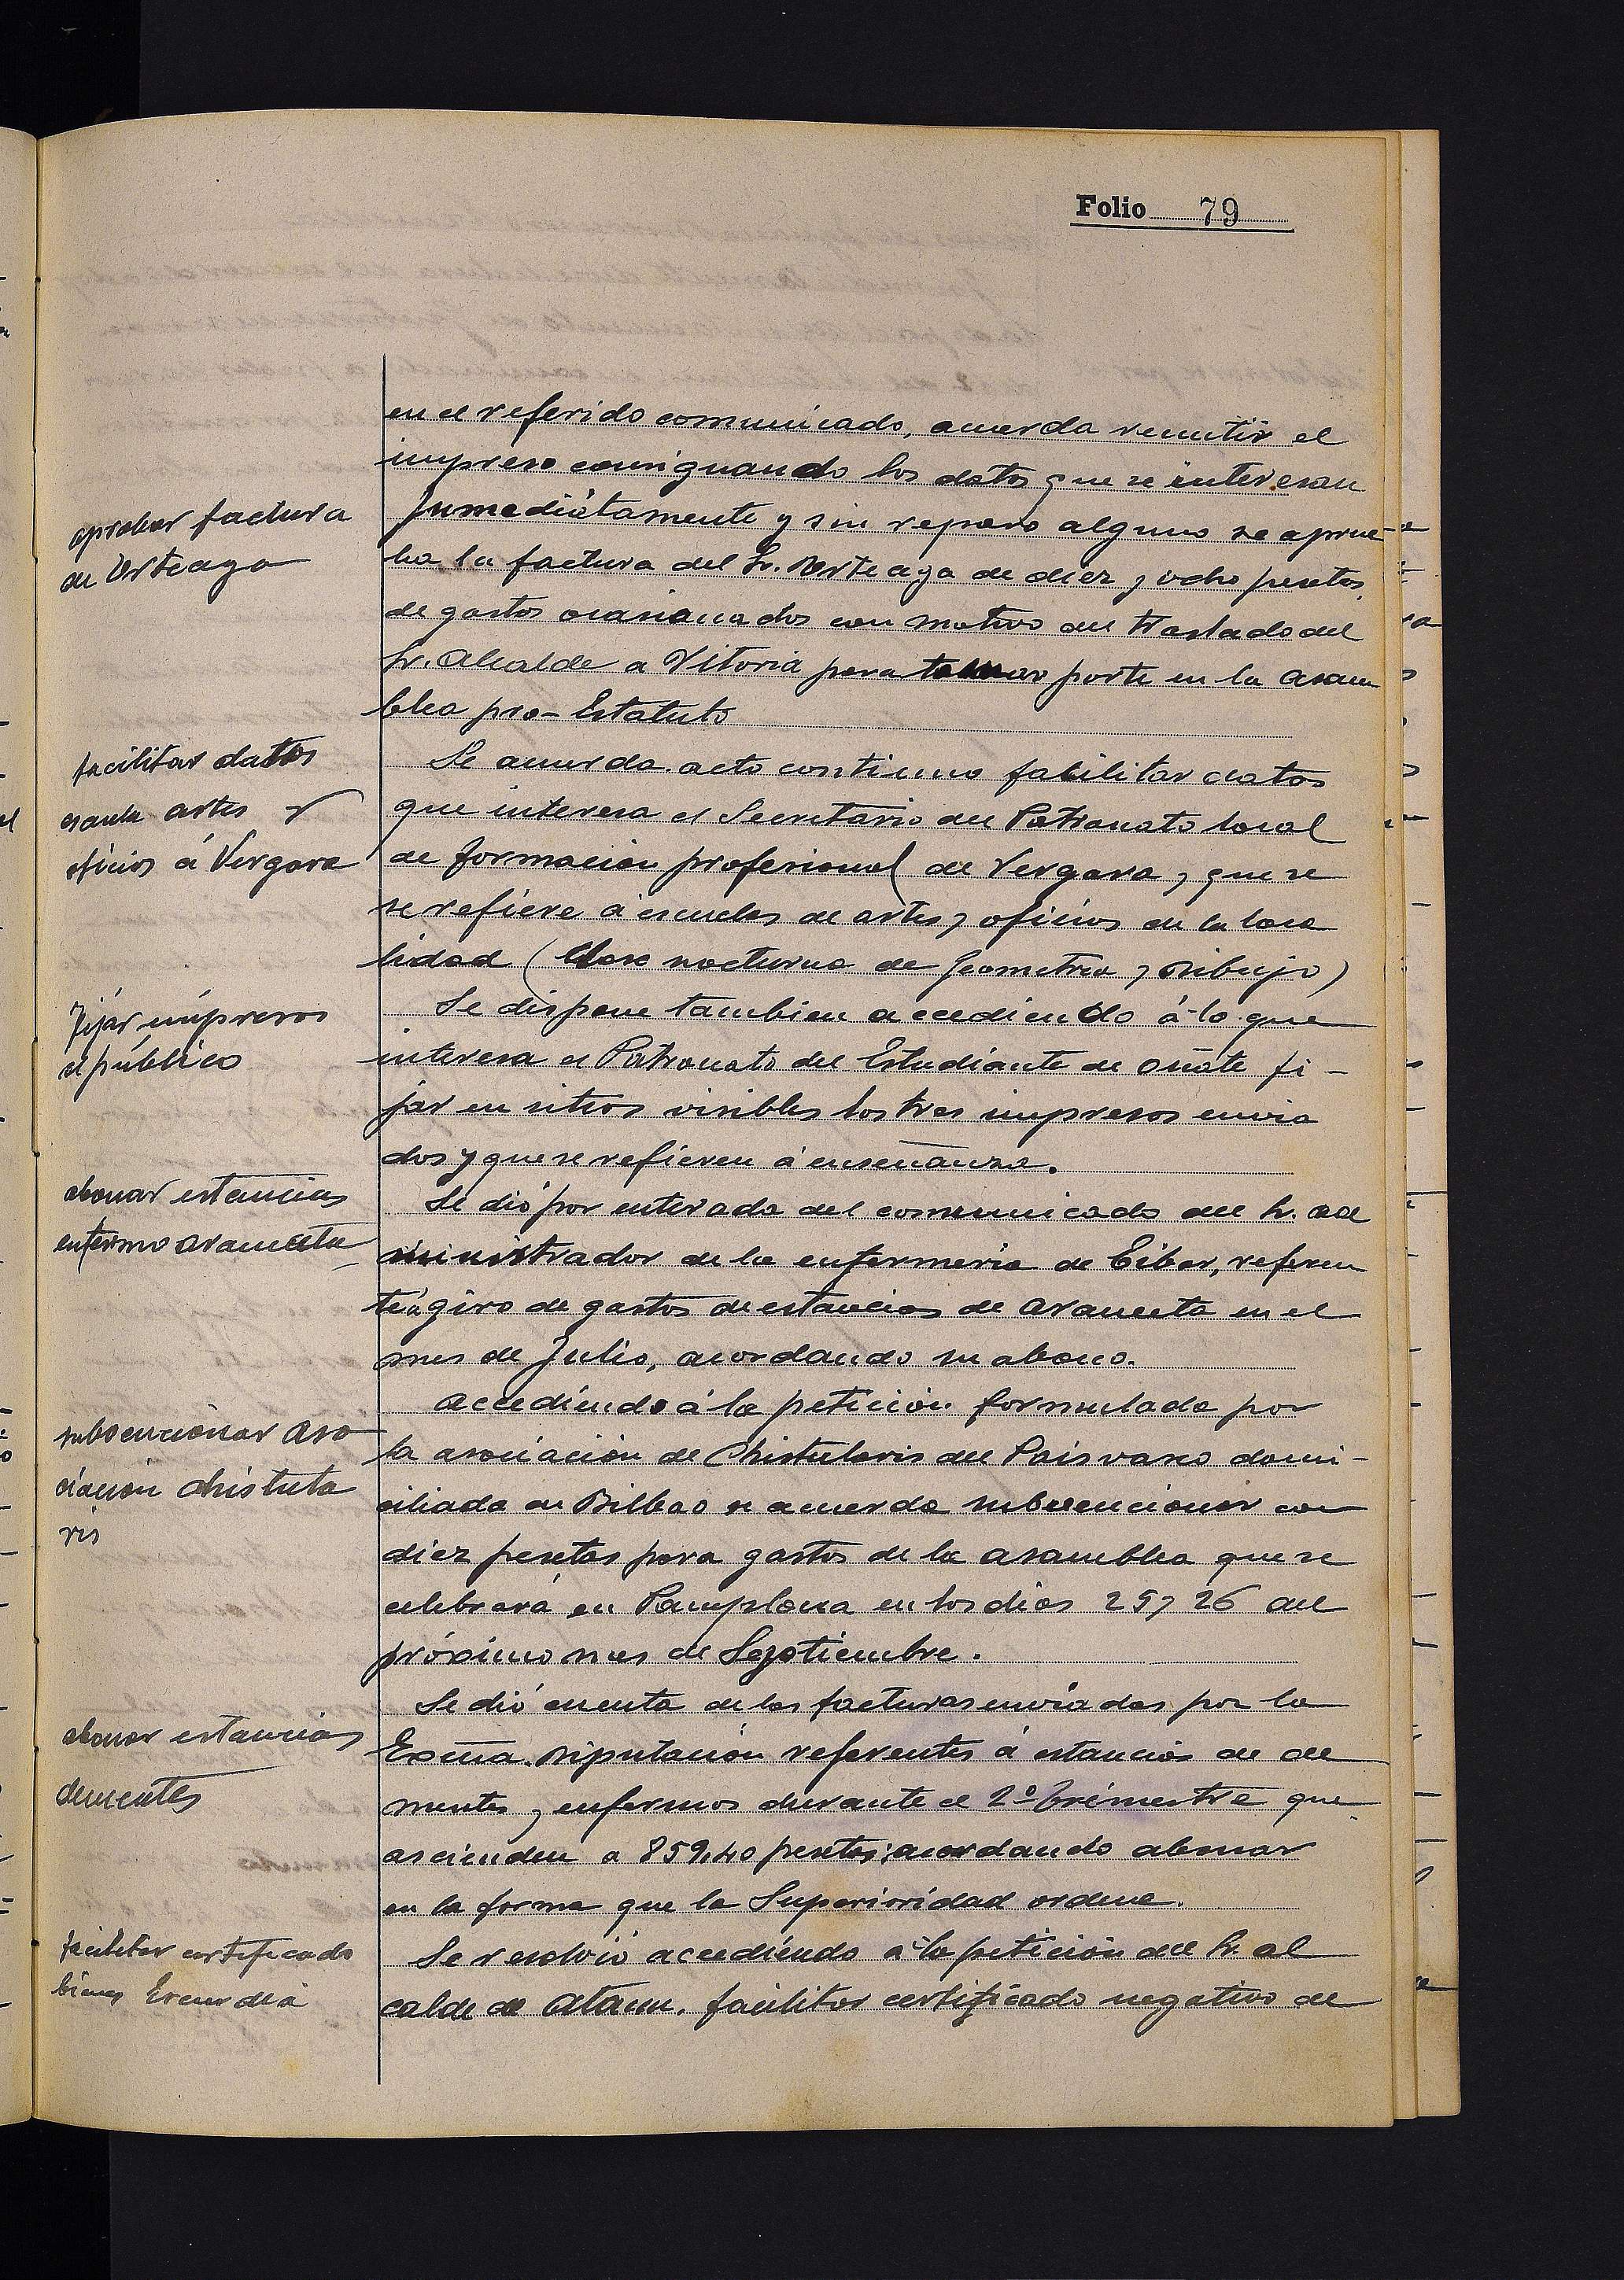 Folio 79
en el referido comunicado, acuerda remitir el
impreso consignando los datos que se interesan
aprobar factura
de Urteaga
Inmediátamente y sin reparo alguno se aprue-
ba la factura del Sr. Urteaga de diez y ocho pesetas
de gastos ocasionados con motivo del traslado del
Sr. Alcalde a Vitoria para tomar parte en la asam
blea pro-Estatuto
facilitar datos
escuela artes y
oficios á Vergara
Se acuerda acto continuo facilitar datos
que interesa el Secretario del Patronato local
de formacion profesional de Vergara y que se
se refiere á escuelas de artes y oficios en la loca
lidad (Clase nocturna de Geometria y Dibujo)
Fijár impresos
al público
Se dispone tambien accediendo á lo que
interesa el Patronato del Estudiante de Oñate fi-
jar en sitios visibles los tres impresos envia
dos y que se refieren á enseñanza.
abonar estancias
enfermo Aramceta
Se dió por enterada del comunicado del Sr. ad
ministrador de la enfermeria de Eibar, referen
te á giro de gastos de estancias de Aramceta en el
mes de Julio, acordando su abono.
subvencionar Aso
ciación chistula
ris
Accediendo á la petición formulada por
la asociación de Chistularis del Pais vasco domi-
ciliada en Bilbao se acuerda subvencionar con
diez pesetas para gastos de la asamblea que se
celebrará en Pamplona en los dias 25 y 26 del
próximo mes de Septiembre.
abonar estancias
dementes
Se dió cuenta de las facturas enviadas por la
Excma. Diputación referentes á estancias de de
mentes y enfermos durante el 2º trimestre que
ascienden a 859,40 pesetas; acordando abonar
en la forma que la Superioridad ordene.
facilitar certificado
bienes Ercurdia
Se resolvió accediendo á la petición del Sr. al
calde de Ataun, facilitar certificado negativo de